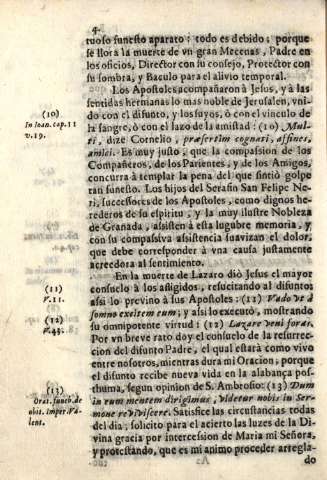 4.
tuoso funesto aparato: todo es debido; porque
se llora la muerte de vn gran Mecenas, Padre en
los oficios, Director con su consejo, Protector con
su sombra, y Baculo para el alivio temporal.
Los Apostoles acompañaron à Jesus, y à las
sentidas hermanas lo mas noble de Jerusalen, vni-
do con el difunto, y los suyos, ò con el vinculo de
la sangre, ò con el lazo de la amistad: (10) Mul-
ti, dize Cornelio, præsertim cognati, affines,
amici. Es muy justo, que la compassion de los
Compañeros, de los Parientes, y de los Amigos,
concurra à templar la pena del que sintiò golpe
tan funesto. Los hijos del Serafin San Felipe Ne-
ri, successores de los Apostoles, como dignos he-
rederos de su espiritu, y la muy ilustre Nobleza
de Granada, assisten à esta lugubre memoria, y
con su compassiva asistencia suavizan el dolor,
que debe corresponder à vna causa justamente
acreedora al sentimiento.
En la muerte de Lazaro diò Jesus el mayor
consuelo à los afligidos, resucitando al difunto:
assi lo previno à sus Apostoles: (11) Vado vt à
somno excitem eum; y assi lo executò, mostrando
su omnipotente virtud: (12) Lazare veni foras.
Por vn breve rato doy el consuelo de la resurrec-
cion del difunto Padre, el qual estarà como vivo
entre nosotros, mientras dura mi Oracion; porque
el difunto recibe nueva vida en la alabança pos-
thuma, segun opinion de S. Ambrosio: (13) Dum
in eum mentem dirigimus, videtur nobis in Ser-
mone reviviscere. Satisfice las circunstancias todas
del dia, solicito para el acierto las luzes de la Di-
vina gracia por intercession de Maria mi Señora,
y protestando, que es mi animo proceder arregla-
do
(10)
In Ioan. cap. 11
v. 19.
(11)
V. 11.
(12)
V. 43.
(13)
Orat. funeb. de
obit. Imper. Va-
lent.